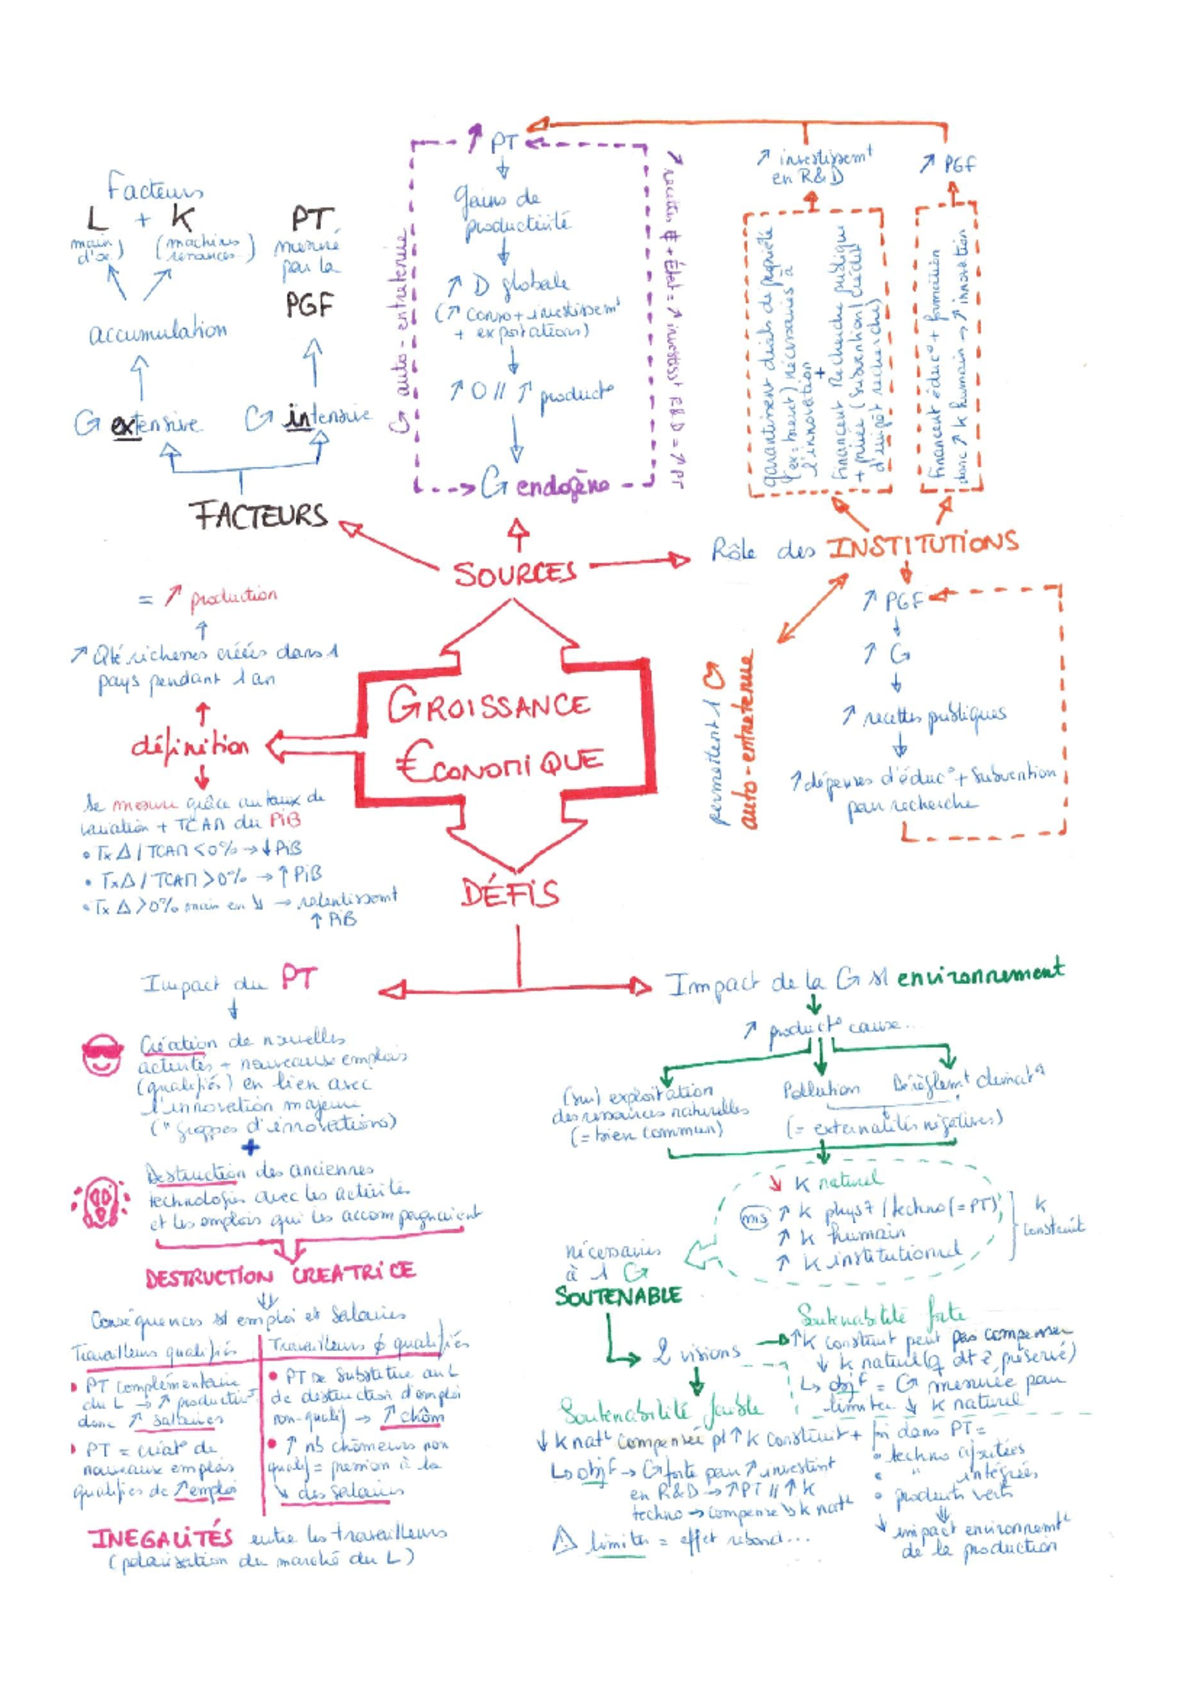 Facteurs
L + K
(main d'œ) (machines
finances..)
accumulation
G extensive
PT
mesuré
par la
PGF
G intensive
FACTEURS
↗ PT
gains de
productivité
↗ D globale
(↗ conso + investissemt
+ exportations)
↗ O // ↗ product°
G endogène
G auto-entretenue
↗ recettes € + État = ↗ investisst R&D = ↗ PT
↗ investissemt
en R&D
↗ PGF
garantissent droits de propriété
(ex = brevet) nécessaires à
l'innovation
+
financent Recherche publique
+ privée (subvention/crédit
d'impôt recherche)
financent éduc° + formation
donc ↗ K humain → ↗ innovation
SOURCES
Rôle des INSTITUTIONS
↗ PGF
↗ G
↗ recettes publiques
↗ dépenses d'éduc° + subvention
pour recherche
permettent 1 G
auto-entretenue
= ↗ production
↗ Qté richesses créées dans 1
pays pendant 1 an
définition
Se mesure grâce au taux de
variation + TCAM du PiB
• Tx Δ / TCAM <0% → ↓ PiB
• Tx Δ / TCAM >0% → ↑ PiB
• Tx Δ >0% mais en ↘ → ralentissemt
↑ PiB
CROISSANCE
€CONOMIQUE
DÉFIS
Impact du PT
Création de nouvelles
activités + nouveaux emplois
(qualifiés) en lien avec
l'innovation majeure
("grappes d'innovations)
+
Destruction des anciennes
technologies avec les activités
et les emplois qui les accompagnaient
DESTRUCTION CREATRICE
Conséquences s/ emploi et salaires
Travailleurs qualifiés
• PT complémentaire
du L → ↗ productivé
donc ↗ salaires
• PT = créat° de
nouveaux emplois
qualifiés de ↗ emploi
Travailleurs ∅ qualifiés
• PT se substitue au L
de destruction d'emploi
non-qualif → ↗ chôm
• ↗ nb chômeurs non
qualif = pression à la
↘ des salaires
INEGALITÉS entre les travailleurs
(polarisation du marché du L)
Impact de la G s/ environnement
↗ product° cause...
(sur)exploitation
des ressources naturelles
(= bien commun)
Pollution
Dérèglemt climatq
(= externalités négatives)
↘ K naturel
mis ↗ K phys / techno (= PT)
↗ K humain
↗ K institutionnel
K
construit
nécessaires
à 1 G
SOUTENABLE
2 visions
Soutenabilité forte
↑ K construit peut pas compenser
↓ K naturel (q dt ê préservé)
↳ objf = G mesurée pour
limiter ↓ K naturel
Soutenabilité faible
↓ K natl compensée pt ↑ K construit + foi dans PT =
↳ objf → G forte pour ↗ investint
en R&D → ↗ PT // ↗ K
techno → compense ↘ K natl
⚠ limites = effet rebond...
• techno ajoutées
• " intégrées
• produits verts
↓ impact environnemtl
de la production